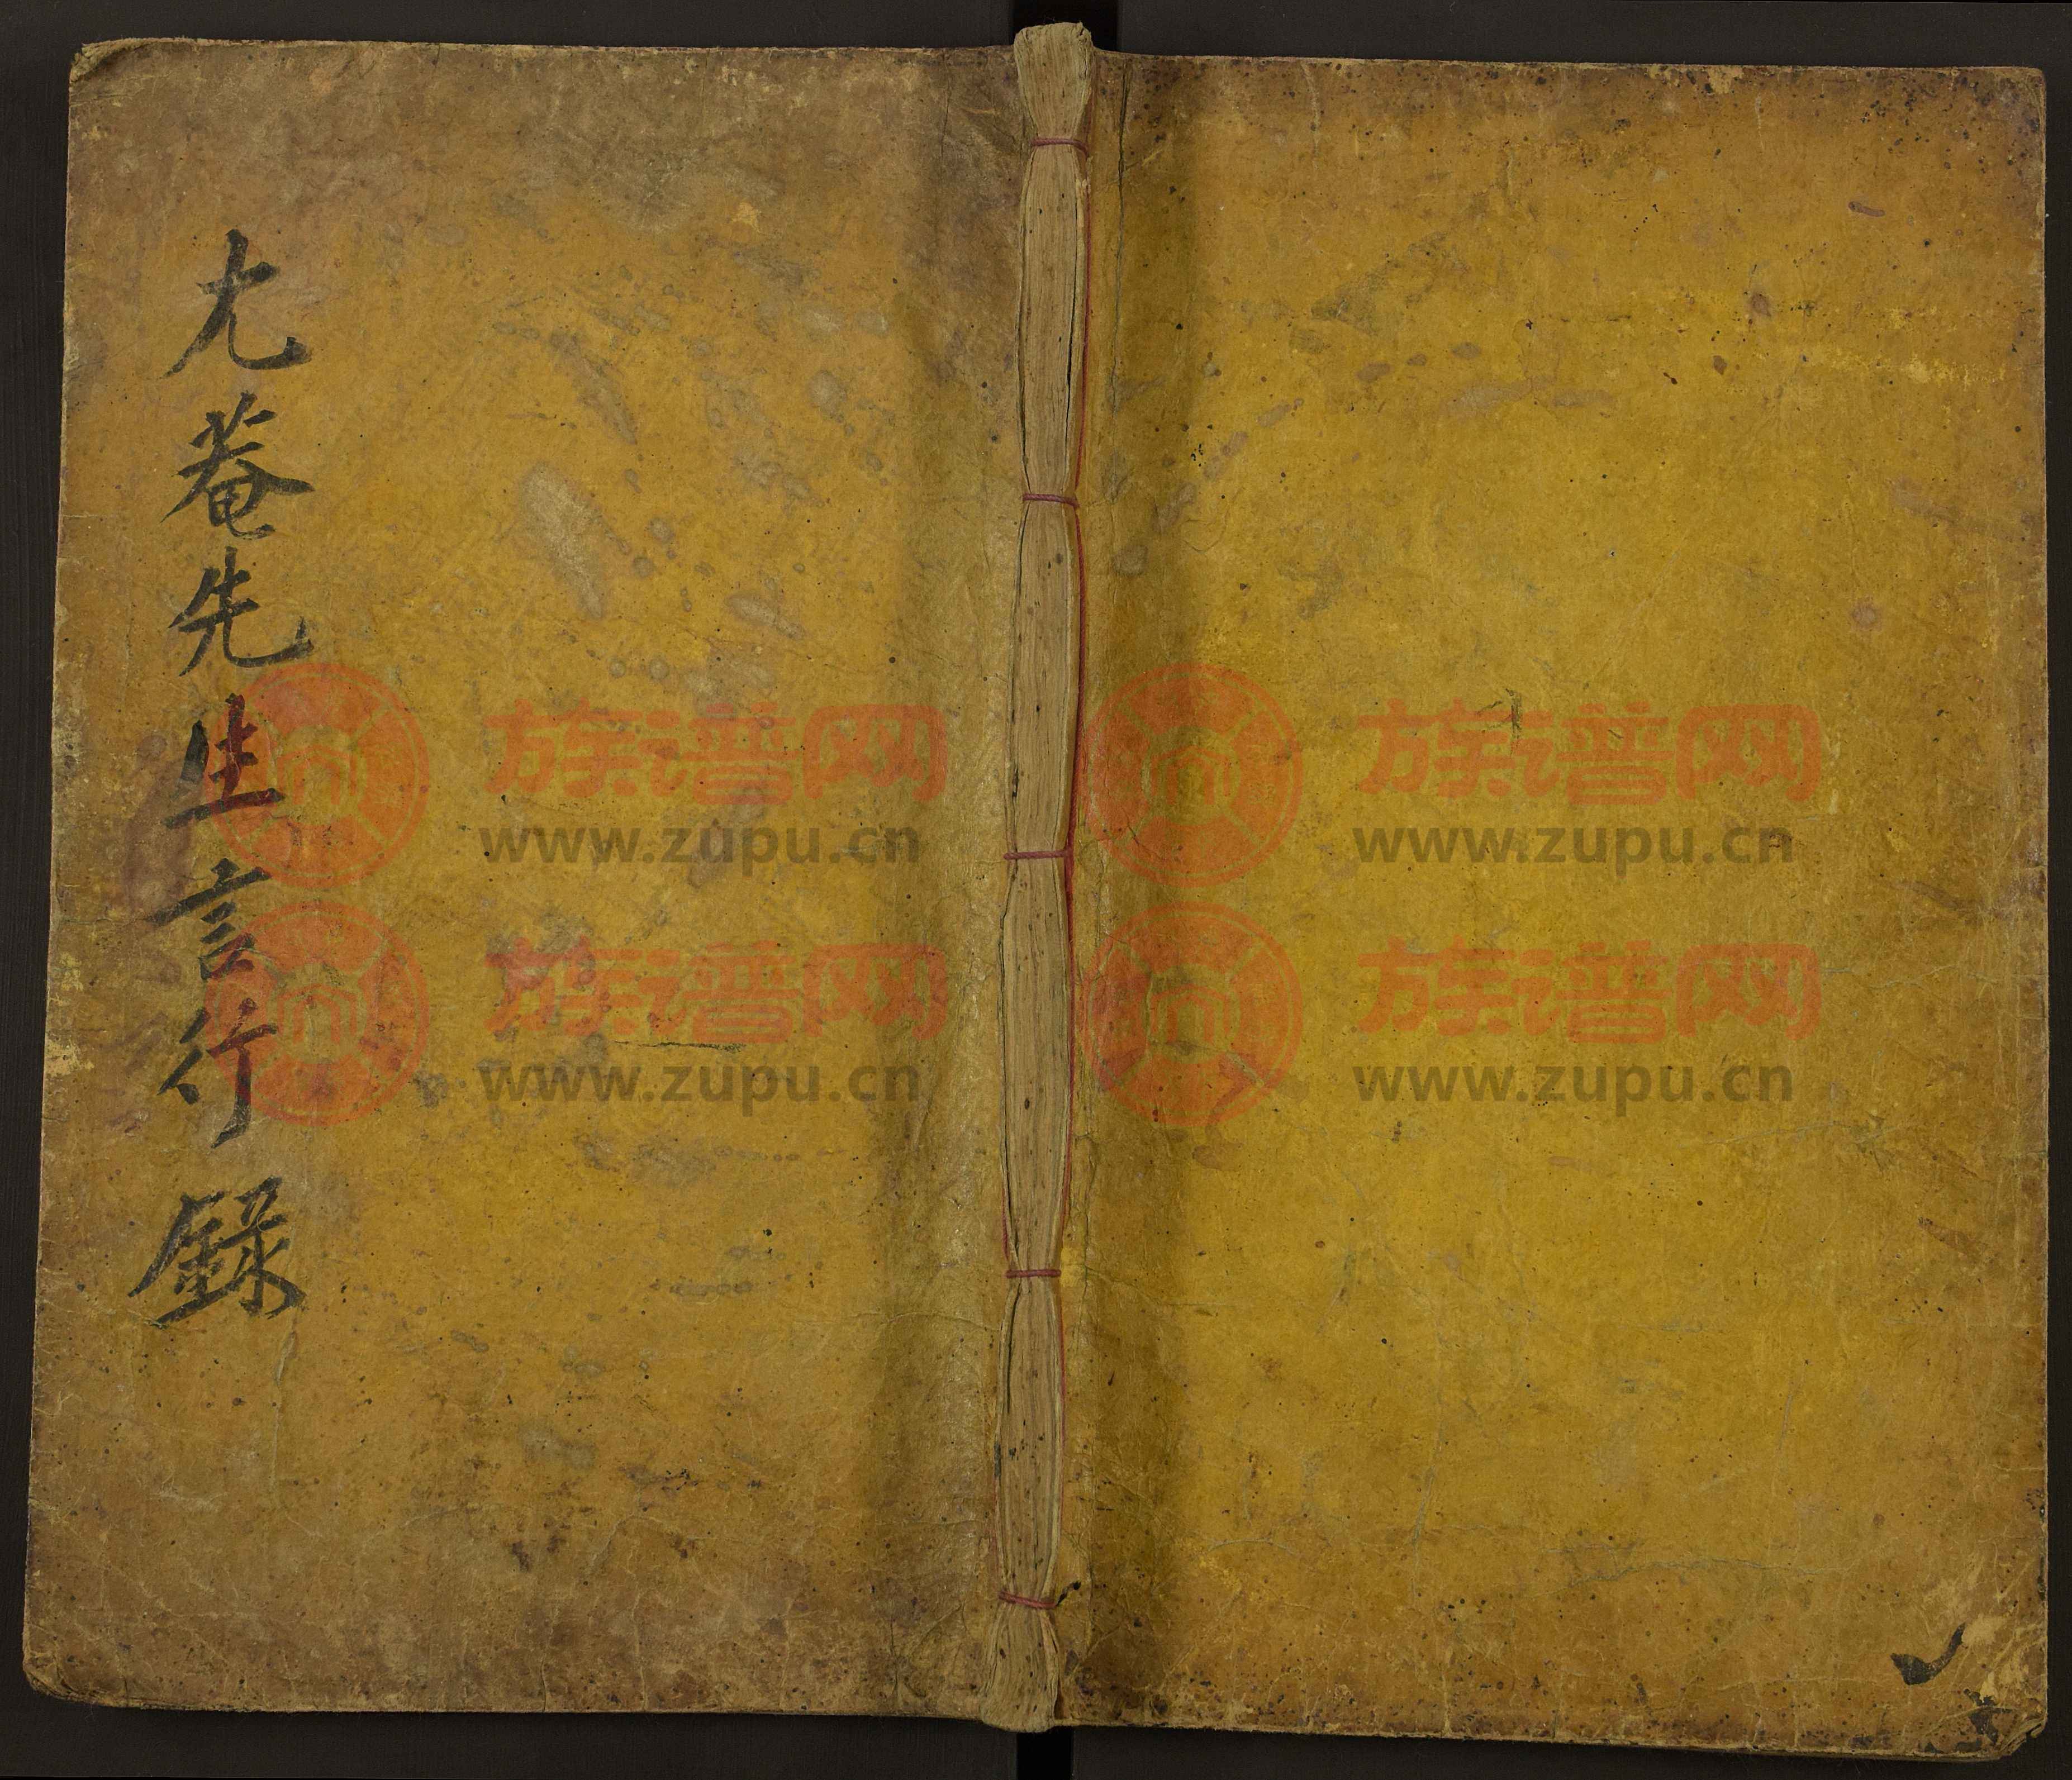 尤菴先生言行錄
族谱网
www.zupu.cn
族谱网
www.zupu.cn
族谱网
www.zupu.cn
族谱网
www.zupu.cn